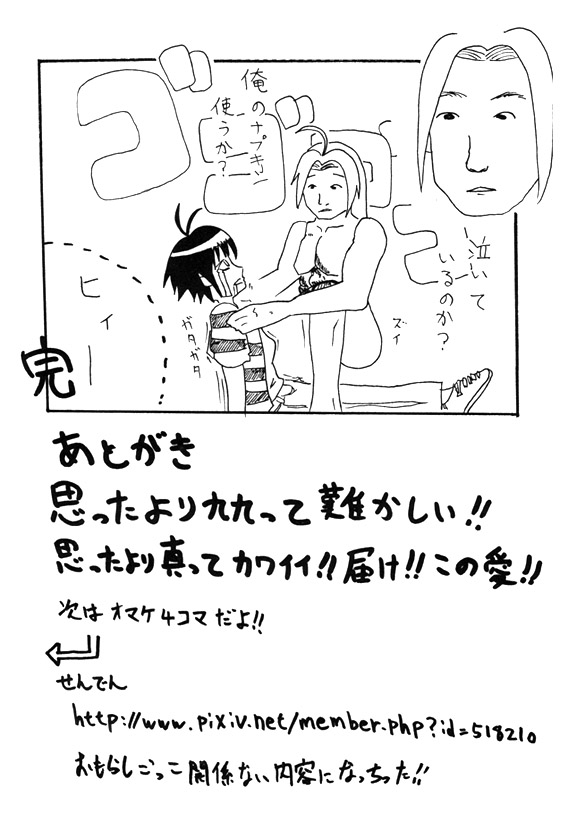 ゴゴゴゴ
泣いて
いるのか？
俺のナプキン
使うか？
ズイ
ガタガタ
ヒィー
完
あとがき
思ったより九九って難かしい!!
思ったより真ってカワイイ!!届け!!この愛!!
次はオマケ4コマだよ!!
せんでん
http://www.pixiv.net/member.php?id=518210
おもらしごっこ関係ない内容になっちった!!